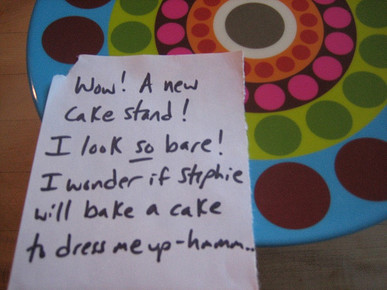 Wow! A new
cake stand!
I look so bare!
I wonder if Stephie
will bake a cake
to dress me up-hmmm..